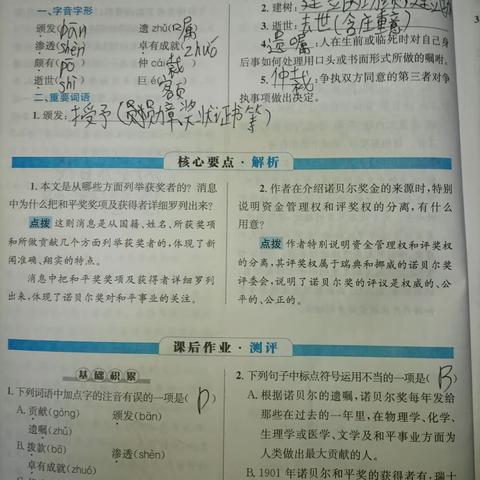 一、字音字形
颁发 bān 遗 zhǔ( 嘱
渗透 shèn 卓有成就 zhuó
颇有 pō 仲 cái( 裁
逝世 shì 巨 é( 额
二、重要词语
1. 颁发：授予(
状证书等)
2. 建树：
3. 逝世：去世(含庄重
4. 遗嘱：人在生前或临死时对自己身
后事如何处理用口头或书面形式所做的嘱咐。
5. 仲裁：争执双方同意的第三者对争
执事项做出决定。
核心要点·解析
1. 本文是从哪些方面列举获奖者的？消息
中为什么把和平奖奖项及获得者详细罗列出来？
点拨 这则消息是从国籍、姓名、所获奖项
和所做贡献几个方面列举获奖者的，体现了新
闻准确、翔实的特点。
消息中把和平奖奖项及获得者详细罗列
出来，体现了诺贝尔奖对和平事业的关注。
2. 作者在介绍诺贝尔奖金的来源时，特别
说明资金管理权和评奖权的分离，有什么
用意？
点拨 作者特别说明资金管理权和评奖权
的分离，其评奖权属于瑞典和挪威的诺贝尔奖
评委会，说明了诺贝尔奖的评议是权威的、公
平的、公正的。
课后作业·测评
基础积累
1. 下列词语中加点字的注音有误的一项是( D )
A. 贡献(gòng) 颁发(bān)
遗嘱(zhǔ)
B. 拨款(bō) 渗透(shèn)
卓有成就(zhuó)
2. 下列句子中标点符号运用不当的一项是( B )
A. 根据诺贝尔的遗嘱，诺贝尔奖每年发给
那些在过去的一年里，在物理学、化学、
生理学或医学、文学及和平事业方面为
人类做出最大贡献的人。
B. 1901 年诺贝尔和平奖的获得者有：瑞士